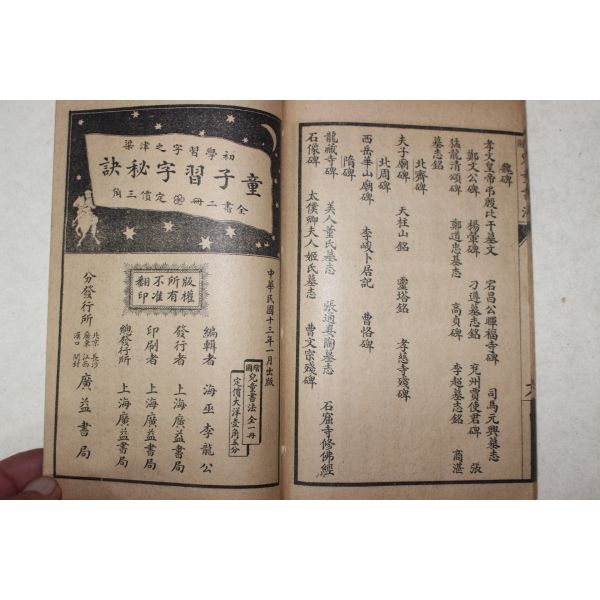 魏碑
孝文皇帝弔殷比干墓文　宕昌公暉福寺碑　司馬元興墓志
鄭文公碑　楊翬碑　刁遵墓志銘　兗州賈使君碑　張
猛龍清頌碑　鄭道忠墓志　高貞碑　李超墓志銘　商湛
墓志銘
北齊碑
夫子廟碑　天柱山銘　靈塔銘　孝慈寺殘碑
北周碑
西岳華山廟碑　李峻卜居記　曹恪碑
隋碑
龍藏寺碑　美人董氏墓志　張通妻陶墓志　石窟寺修佛經
石像碑　太僕卿夫人姬氏墓志　曹文宗殘碑
初學習字之津梁
童子習字秘訣
全書二冊　定價三角
版權所有
不准翻印
中華民國十三年一月出版
增圖兒童書法全一冊
定價大洋壹角五分
編輯者　海巫李龍公
發行者　上海廣益書局
印刷者　上海廣益書局
總發行所　上海廣益書局
分發行所　北京　長沙　廣東　江西　漢口　開封　廣益書局